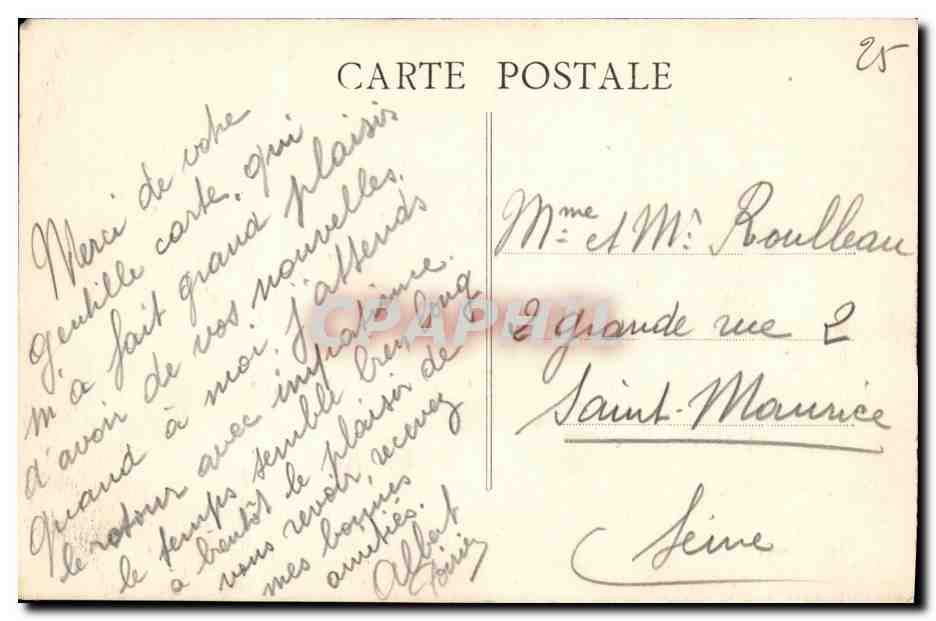 CARTE POSTALE
25
Merci de votre
gentille carte, qui
m'a fait grand plaisir
d'avoir de vos nouvelles.
Quand à moi j'attends
le retour avec impatience.
le temps semble bien long
a bientôt le plaisir de
vous revoir, recevez
mes bonnes
amitiés.
Albert
Mme et Mr Roulleau
2 grande rue 2
Saint-Maurice
Seine
CPAPHIL